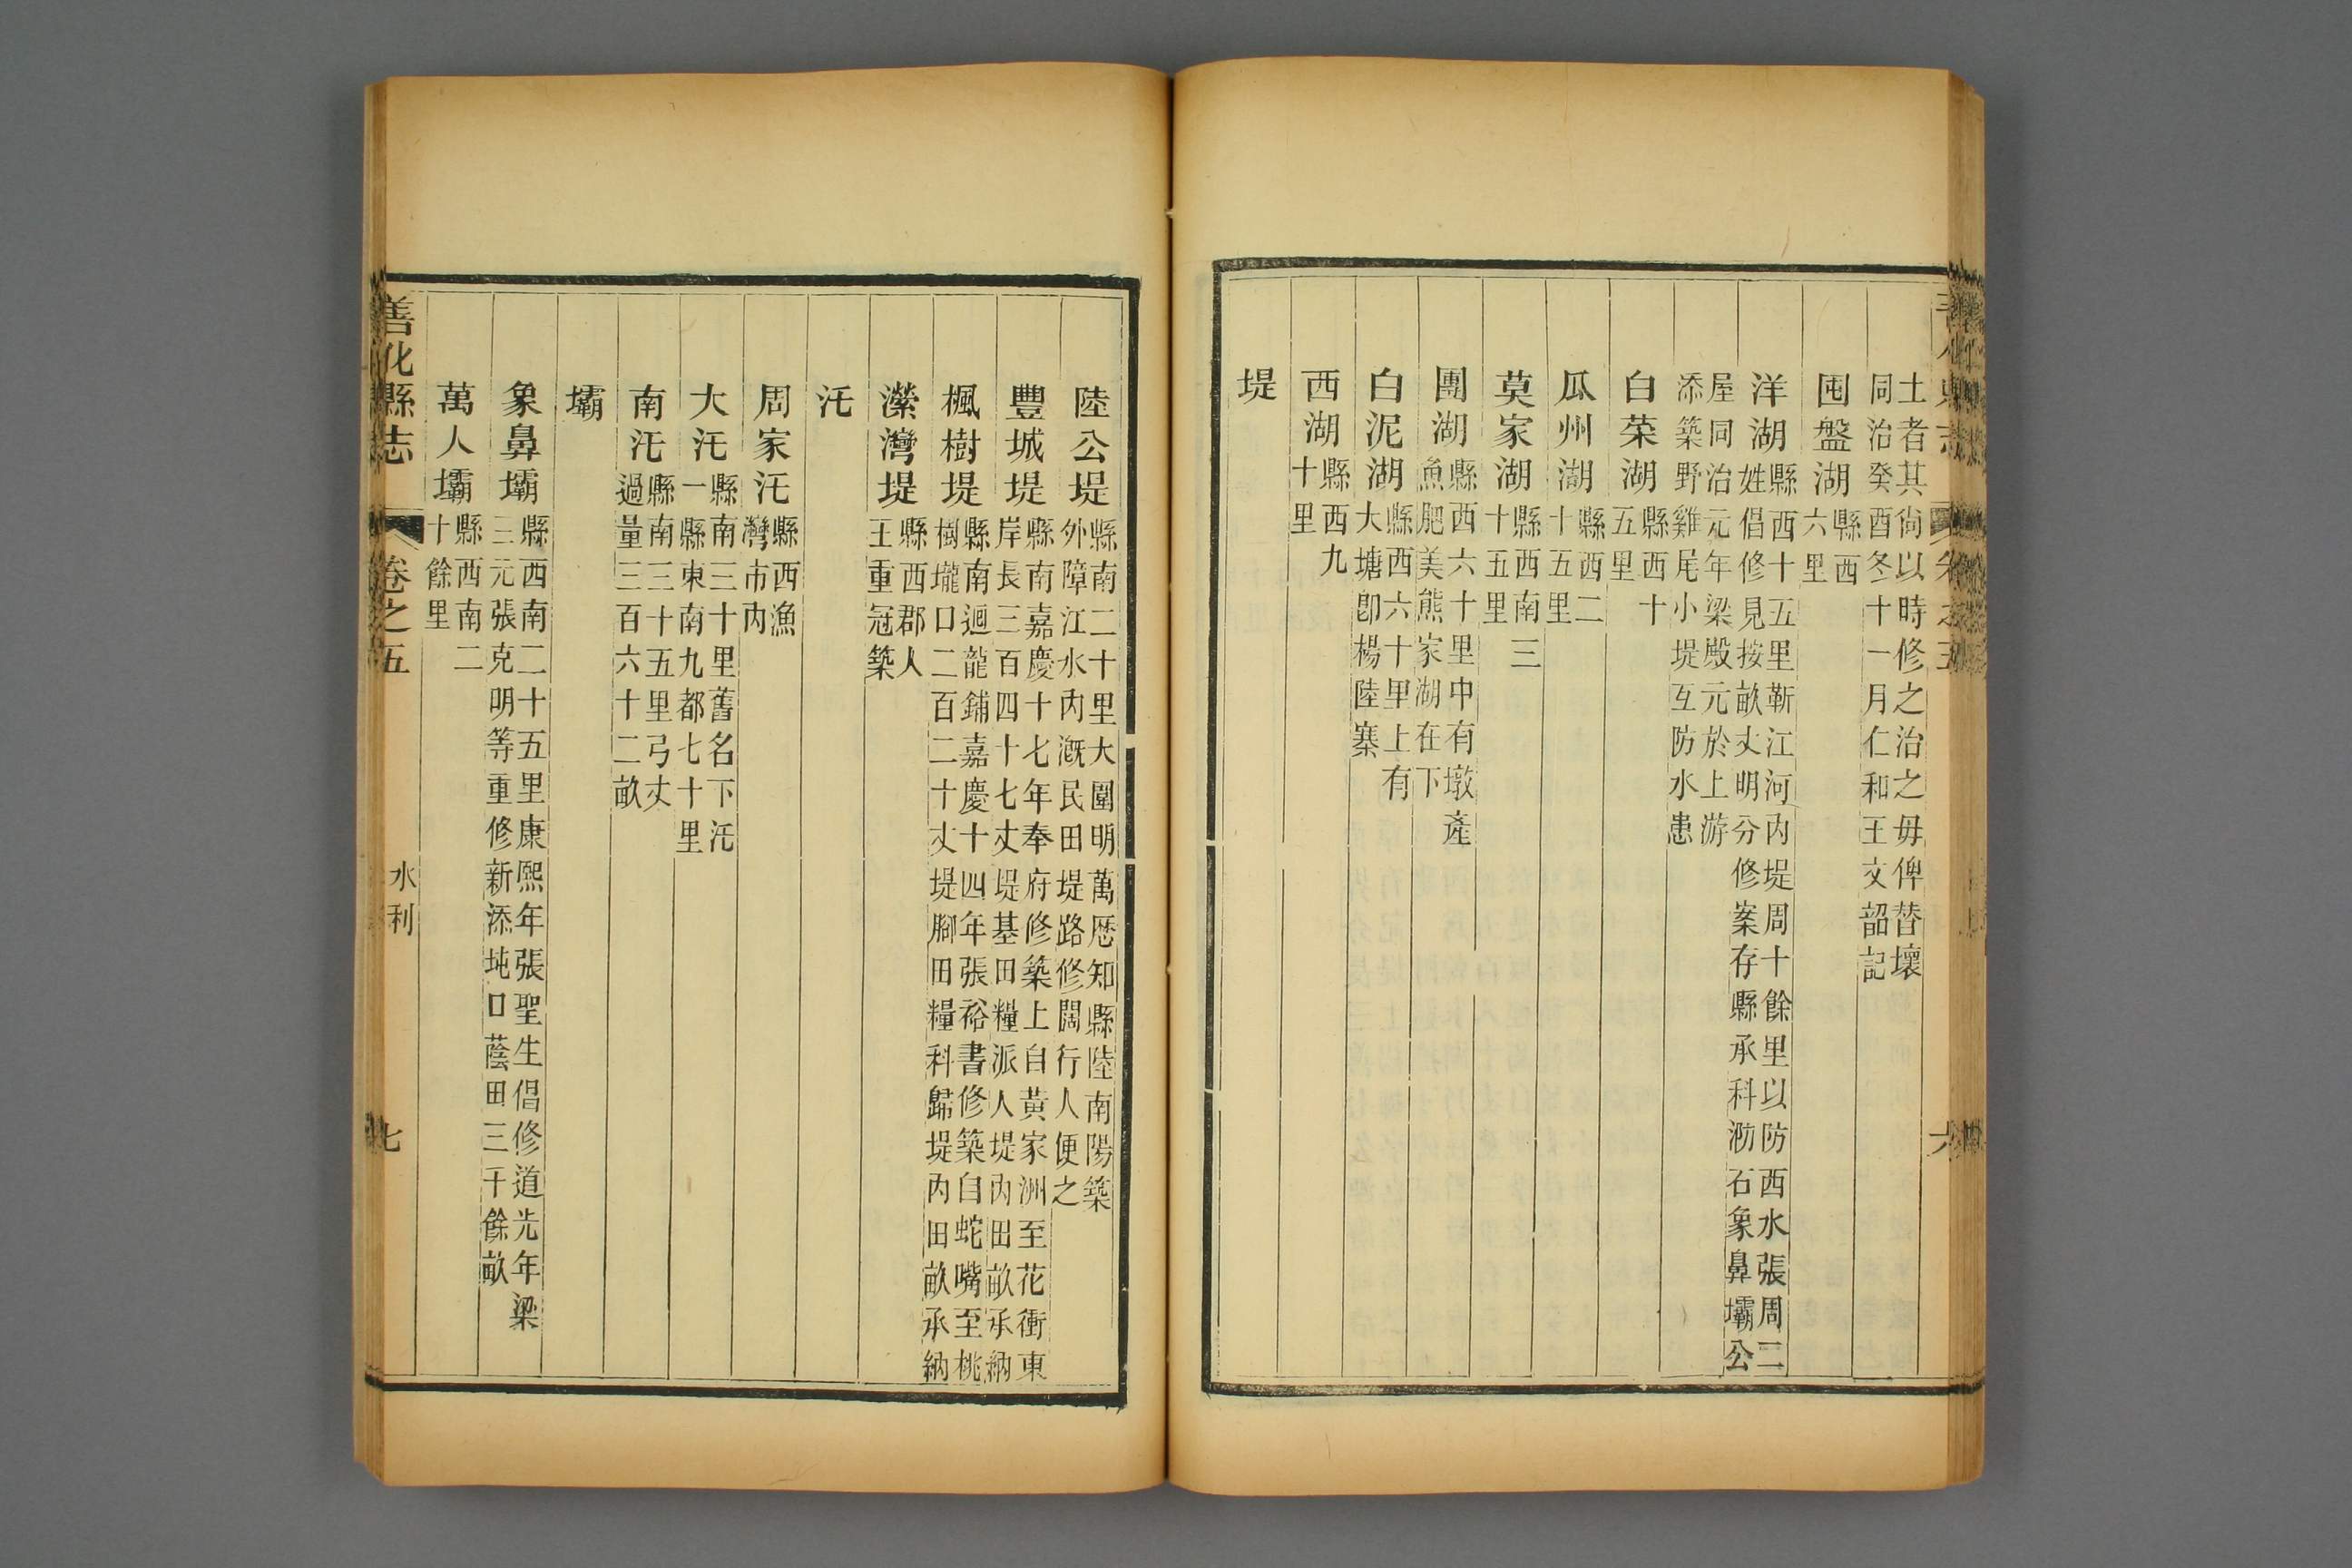 土者其尙以時修之治之毋俾替壞
同治癸酉冬十一月仁和王文韶記
囤盤湖縣西六里
洋湖縣西十五里靳江河內堤周十餘里以防西水張周二
姓倡修見按畝丈明分修案存縣承科泐石象鼻壩公
屋同治元年梁殿元於上游
添築野雞尾小堤互防水患
白荣湖縣西十五里
瓜州湖縣西二十五里
莫家湖縣西南三十五里
團湖縣西六十里中有墩產魚肥美熊家湖在下
白泥湖縣西六十里上有大塘卽楊陸寨
西湖縣西九十里
堤
陸公堤縣南二十里大圍明萬歴知縣陸南陽築
外障江水內漑民田堤路修闊行人便之
豐城堤縣南嘉慶十七年奉府修築上自黃家洲至花衝東
岸長三百四十七丈堤基田糧派人堤內田畝承納
楓樹堤縣南迴龍鋪嘉慶十四年張裕書修築自蛇嘴至桃
樹壠口二百二十丈堤腳田糧科歸堤內田畝承納
濚灣堤縣西郡人王重冠築
汑
周家汑縣西漁灣市內
大汑縣南三十里舊名下汑一縣東南九都七十里
南汑縣南三十五里弓丈過量三百六十二畝
壩
象鼻壩縣西南二十五里康熙年張聖生倡修道光年梁
三元張克明等重修新添坉口蔭田三千餘畝
萬人壩縣西南二十餘里
善化縣志 卷之五 水利 七